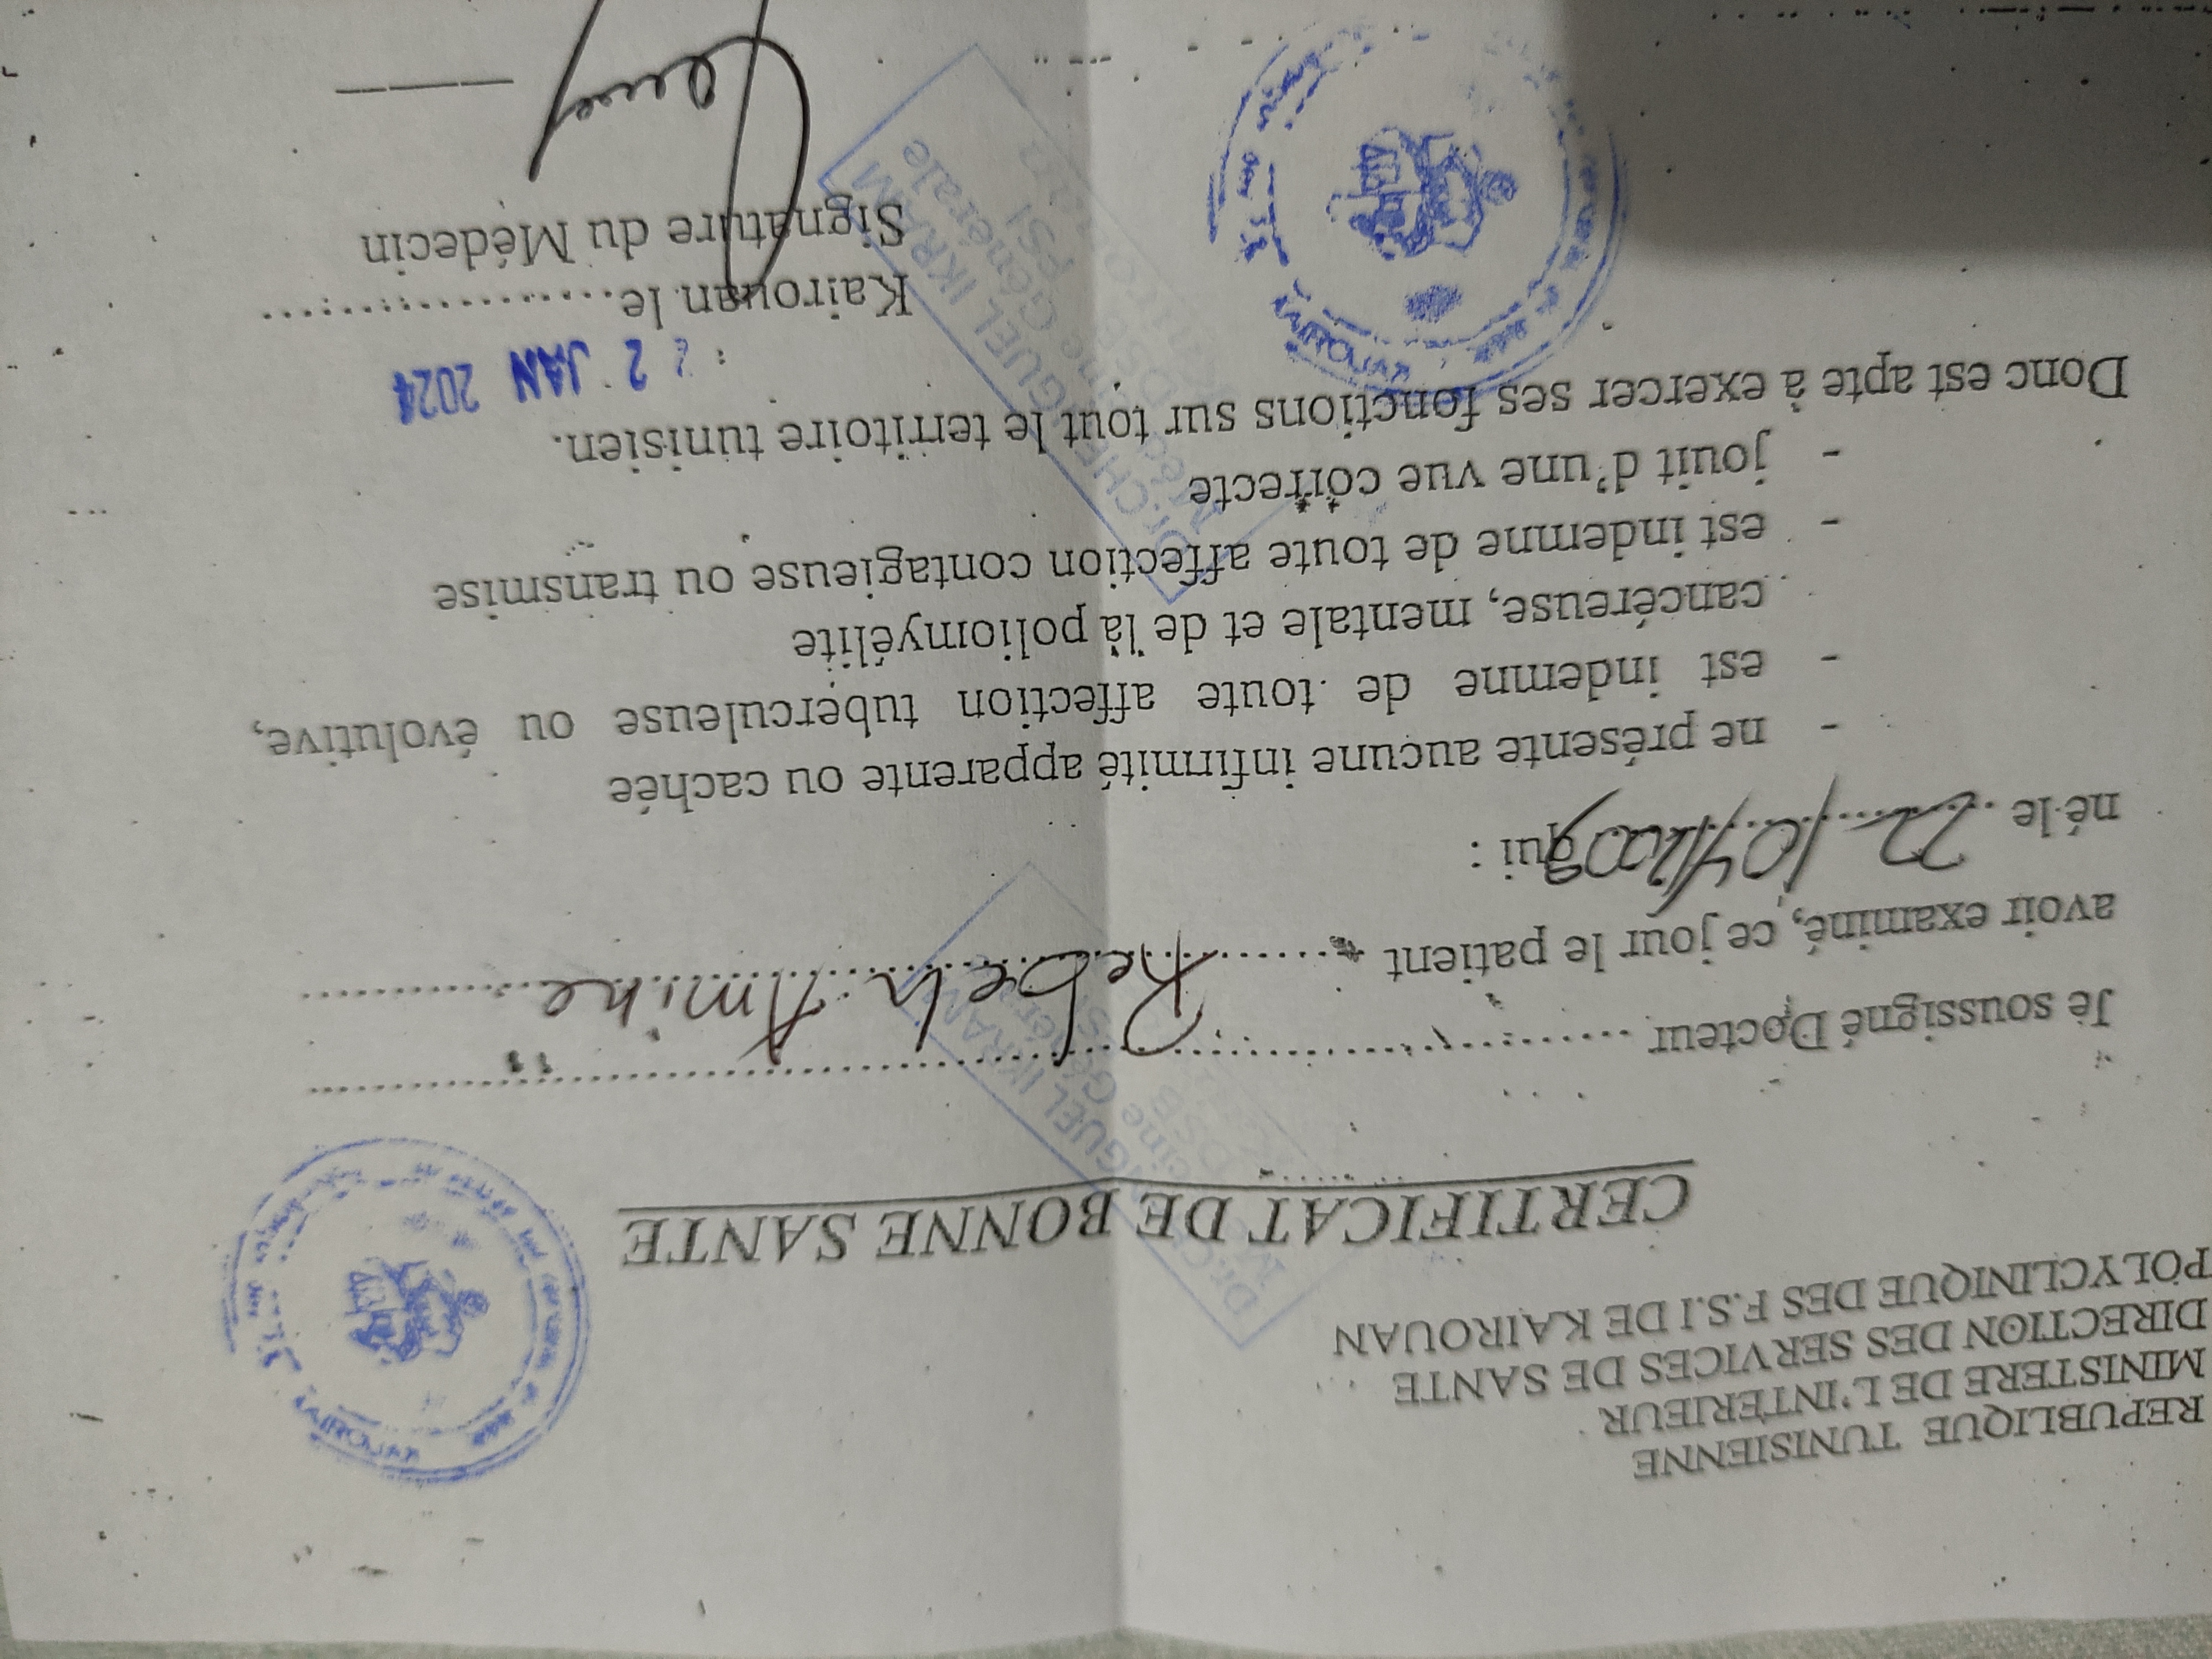 REPUBLIQUE TUNISIENNE
MINISTERE DE L'INTERIEUR
DIRECTION DES SERVICES DE SANTE
POLYCLINIQUE DES F.S.I DE KAIROUAN
CERTIFICAT DE BONNE SANTE
Je soussigné Docteur
avoir examiné, ce jour le patient Rebeh Amine
né le 22/04/200 qui :
- ne présente aucune infirmité apparente ou cachée
- est indemne de toute affection tuberculeuse ou évolutive,
cancéreuse, mentale et de la poliomyélite
- est indemne de toute affection contagieuse ou transmise
- jouit d'une vue correcte
Donc est apte à exercer ses fonctions sur tout le territoire tunisien.
2 JAN 2024
Kairouan le
Signature du Médecin
KAIROUAN
GUEL IKRAM
Dr.CHE GUEL IKRAM
Générale
KAIROUAN